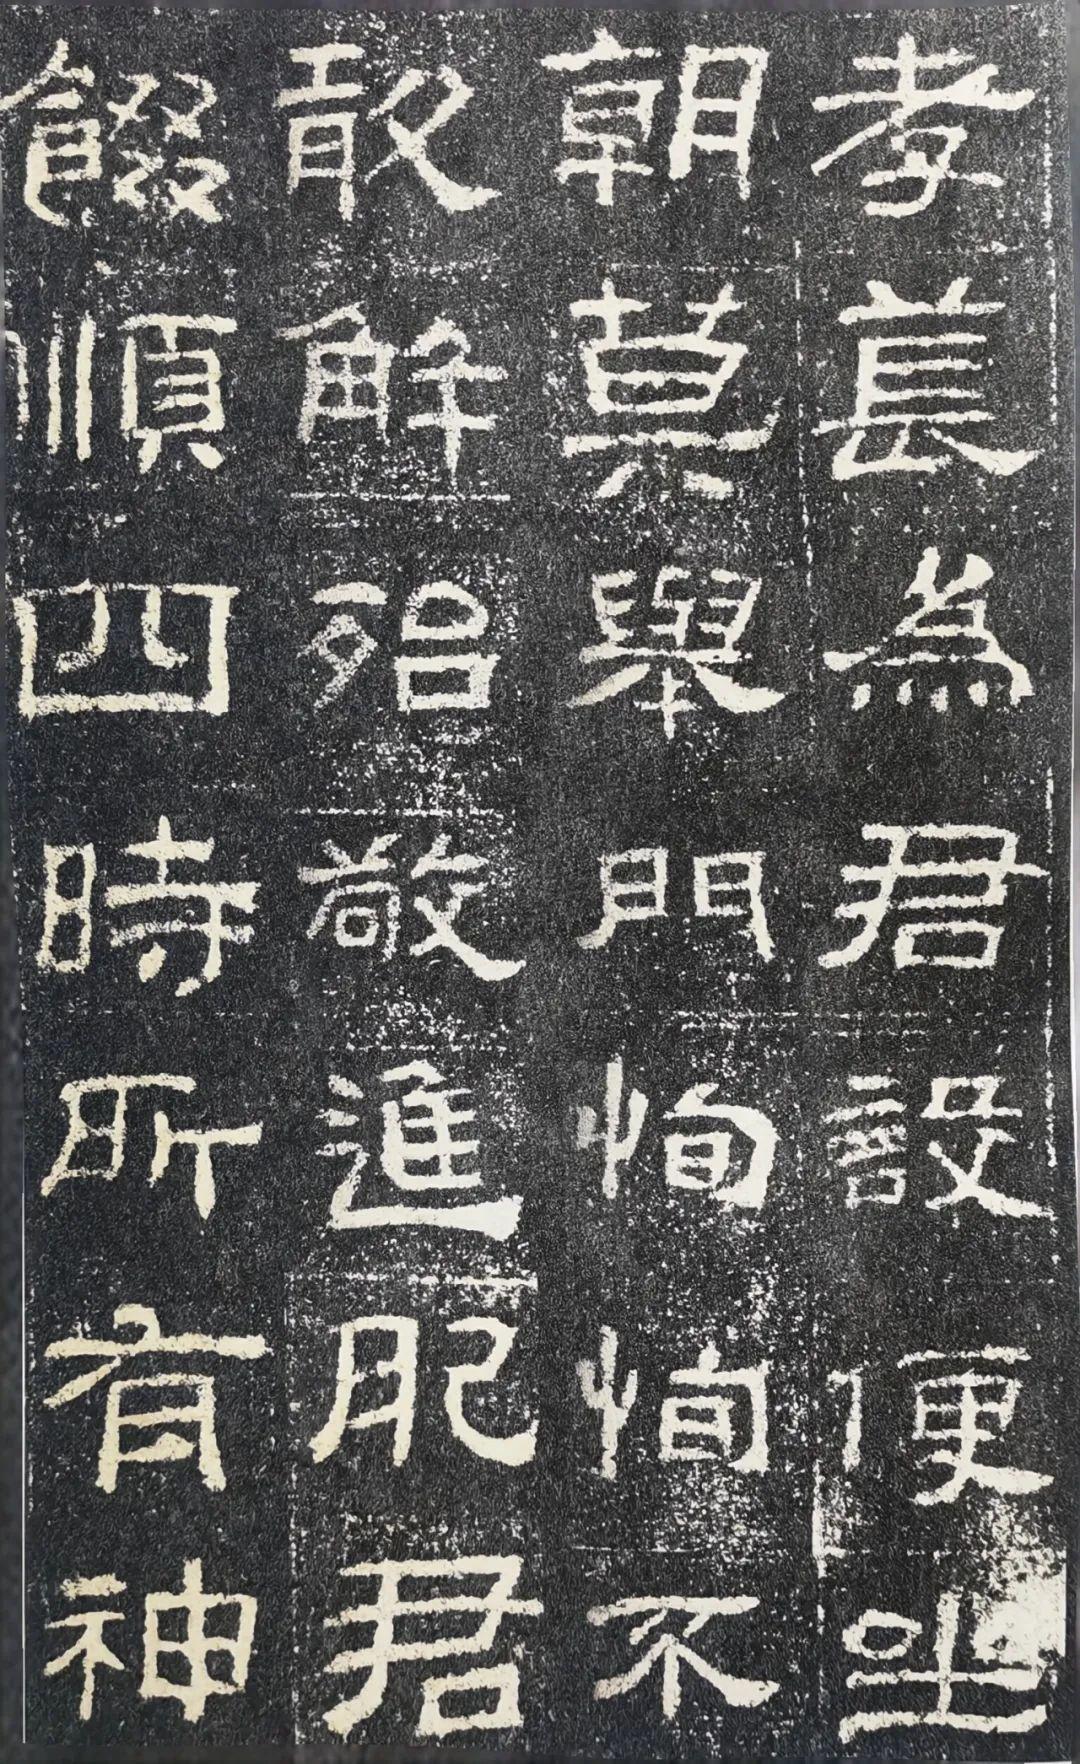 孝萇為君設便坐
朝莫舉門恂恂不
敢解殆敬進肥君
餟順四時所有神